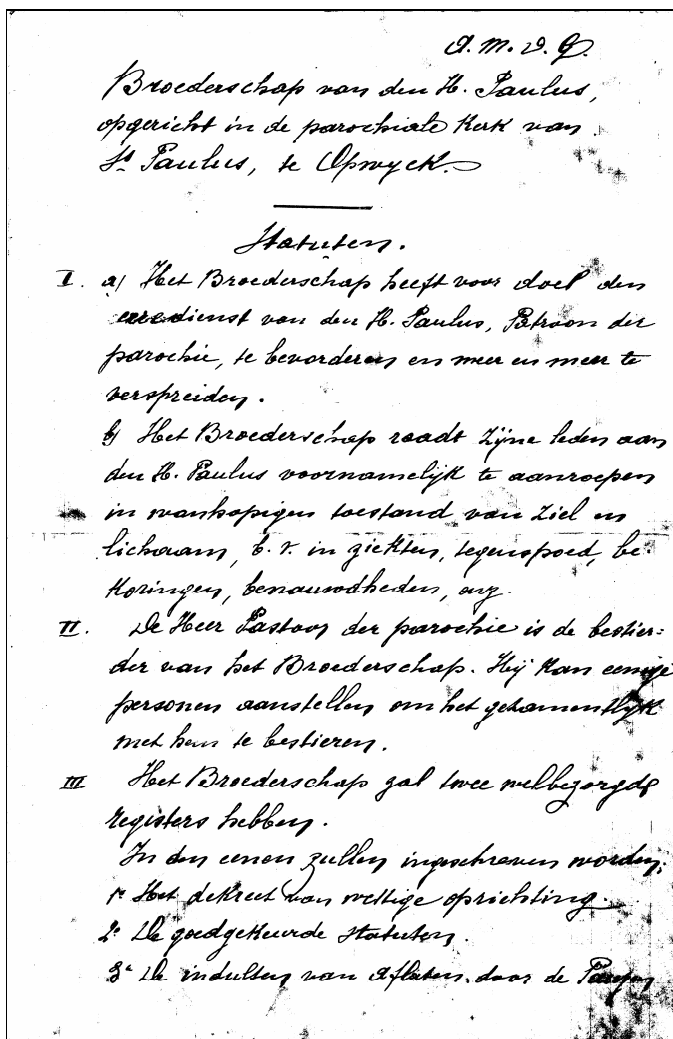 A. M. D. G.
Broederschap van den H. Paulus,
opgericht in de parochiale Kerk van
St Paulus, te Opwyck.
Statuten.
I. a) Het Broederschap heeft voor doel den
eeredienst van den H. Paulus, Patroon der
parochie, te bevorderen en meer en meer te
verspreiden.
b) Het Broederschap raadt zijne leden aan
den H. Paulus voornamelijk te aanroepen
in wanhopigen toestand van ziel en
lichaam, b. v. in ziekten, tegenspoed, be-
koringen, benauwdheden, enz.
II. De Heer Pastoor der parochie is de bestier=
der van het Broederschap. Hij kan eenige
personen aanstellen om het gezamentlijk
met hem te bestieren.
III Het Broederschap zal twee welbezorgde
registers hebben.
In den eenen zullen ingeschreven worden:
1° Het dekreet van wettige oprichting.
2° De goedgekeurde Statuten.
3° De indulten van Aflaten door de Pausen